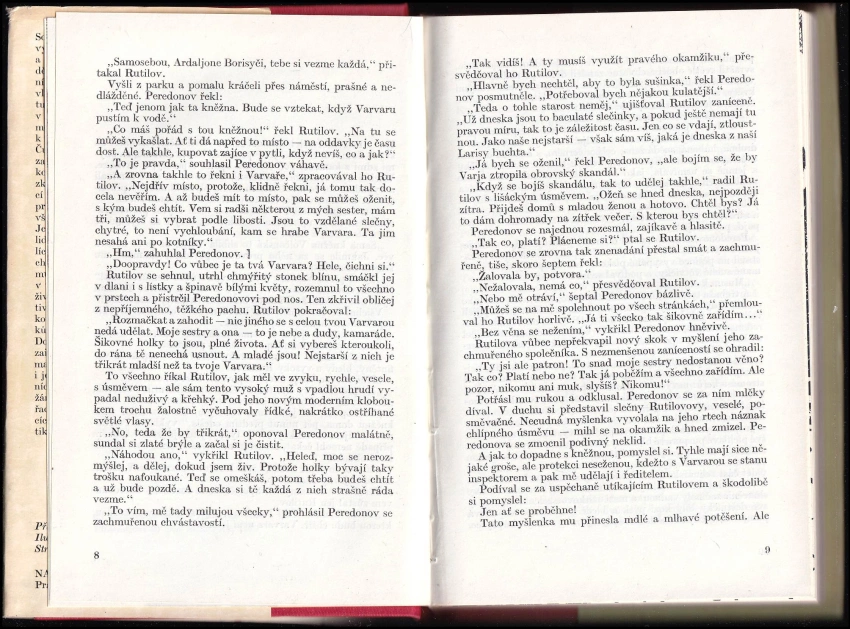 „Samosebou, Ardaljone Borisyči, tebe si vezme každá,“ při-
takal Rutilov.
Vyšli z parku a pomalu kráčeli přes náměstí, prašné a ne-
dlážděné. Peredonov řekl:
„Teď jenom jak ta kněžna. Bude se vztekat, když Varvaru
pustím k vodě.“
„Co máš pořád s tou kněžnou!“ řekl Rutilov. „Na tu se
můžeš vykašlat. Ať ti dá napřed to místo — na oddavky je času
dost. Ale takhle, kupovat zajíce v pytli, když nevíš, co a jak?“
„To je pravda,“ souhlasil Peredonov váhavě.
„A zrovna takhle to řekni i Varvaře,“ zpracovával ho Ru-
tilov. „Nejdřív místo, protože, klidně řekni, já tomu tak do-
cela nevěřím. A až budeš mít to místo, pak se můžeš oženit,
s kým budeš chtít. Vem si radši některou z mých sester, mám
tři, můžeš si vybrat podle libosti. Jsou to vzdělané slečny,
chytré, to není vychloubání, kam se hrabe Varvara. Ta jim
nesahá ani po kotníky.“
„Hm,“ zahuhlal Peredonov.
„Doopravdy! Co vůbec je ta tvá Varvara? Hele, čichni si.“
Rutilov se sehnul, utrhl chmýřitý stonek blínu, smáčkl jej
v dlani i s lístky a špinavě bílými květy, rozemnul to všechno
v prstech a přistrčil Peredonovovi pod nos. Ten zkřivil obličej
z nepříjemného, těžkého pachu. Rutilov pokračoval:
„Rozmačkat a zahodit — nic jiného se s celou tvou Varvarou
nedá udělat. Moje sestry a ona — to je nebe a dudy, kamaráde.
Šikovné holky to jsou, plné života. Ať si vybereš kteroukoli,
do rána tě nenechá usnout. A mladé jsou! Nejstarší z nich je
třikrát mladší než ta tvoje Varvara.“
To všechno říkal Rutilov, jak měl ve zvyku, rychle, vesele,
s úsměvem — ale sám tento vysoký muž s vpadlou hrudí vy-
padal neduživý a křehký. Pod jeho novým moderním klobou-
kem trochu žalostně vyčuhovaly řídké, nakrátko ostříhané
světlé vlasy.
„No, teda že by třikrát,“ oponoval Peredonov malátně,
sundal si zlaté brýle a začal si je čistit.
„Náhodou ano,“ vykřikl Rutilov. „Heleď, moc se neroz-
mýšlej, a dělej, dokud jsem živ. Protože holky bývají taky
trošku nafoukané. Teď se omeškáš, potom třeba budeš chtít
a už bude pozdě. A dneska si tě každá z nich strašně ráda
vezme.“
„To vím, mě tady milujou všecky,“ prohlásil Peredonov se
zachmuřenou chvástavostí.
8
„Tak vidíš! A ty musíš využít pravého okamžiku,“ pře-
svědčoval ho Rutilov.
„Hlavně bych nechtěl, aby to byla sušinka,“ řekl Peredo-
nov posmutněle. „Potřeboval bych nějakou kulatější.“
„Teda o tohle starost neměj,“ ujišťoval Rutilov zaníceně.
„Už dneska jsou to baculaté slečinky, a pokud ještě nemají tu
pravou míru, tak to je záležitost času. Jen co se vdají, ztloust-
nou. Jako naše nejstarší — však sám víš, jaká je dneska z naší
Larisy buchta.“
„Já bych se oženil,“ řekl Peredonov, „ale bojím se, že by
Varja ztropila obrovský skandál.“
„Když se bojíš skandálu, tak to udělej takhle,“ radil Ru-
tilov s lišáckým úsměvem. „Ožeň se hned dneska, nejpozději
zítra. Přijdeš domů s mladou ženou a hotovo. Chtěl bys? Já
to dám dohromady na zítřek večer. S kterou bys chtěl?“
Peredonov se najednou rozesmál, zajíkavě a hlasitě.
„Tak co, platí? Plácneme si?“ ptal se Rutilov.
Peredonov se zrovna tak znenadání přestal smát a zachmu-
řeně, tiše, skoro šeptem řekl:
„Žalovala by, potvora.“
„Nežalovala, nemá co,“ přesvědčoval Rutilov.
„Nebo mě otráví,“ šeptal Peredonov bázlivě.
„Můžeš se na mě spolehnout po všech stránkách,“ přemlou-
val ho Rutilov horlivě. „Já ti všecko tak šikovně zařídím…“
„Bez věna se nežením,“ vykřikl Peredonov hněvivě.
Rutilova vůbec nepřekvapil nový skok v myšlení jeho za-
chmuřeného společníka. S nezmenšenou zaníceností se ohradil:
„Ty jsi ale patron! To snad moje sestry nedostanou věno?
Tak co? Platí nebo ne? Tak já poběžím a všechno zařídím. Ale
pozor, nikomu ani muk, slyšíš? Nikomu!“
Potřásl mu rukou a odklusal. Peredonov se za ním mlčky
díval. V duchu si představil slečny Rutilovovy, veselé, po-
směvačné. Necudná myšlenka vyvolala na jeho rtech náznak
chlípného úsměvu — mihl se na okamžik a hned zmizel. Pe-
redonova se zmocnil podivný neklid.
A jak to dopadne s kněžnou, pomyslel si. Tyhle mají sice ně-
jaké groše, ale protekci neseženou, kdežto s Varvarou se stanu
inspektorem a pak mě udělají i ředitelem.
Podíval se za uspěchaně utíkajícím Rutilovem a škodolibě
si pomyslel:
Jen ať se proběhne!
Tato myšlenka mu přinesla mdlé a mlhavé potěšení. Ale
9